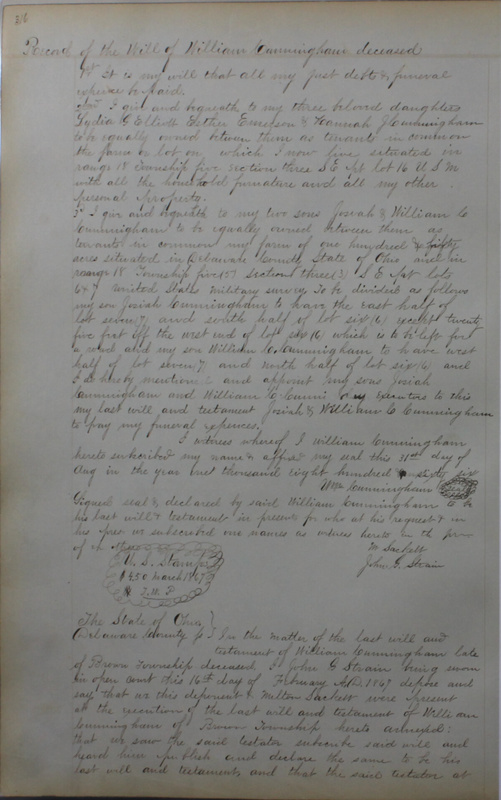 316
Record of the Will of William Cunningham deceased
1st It is my will that all my just debts & funeral
expenses be paid.
2nd I give and bequeath to my three beloved daughters
Lydia G Elliott Esther Emerson & Hannah J Cunningham
to be equally owned between them as tenants in common
the farm or lot on which I now live situated in
range 18 Township five section three S E Pt lot 16 U S M
with all the household furnature and all my other
personal property.
3d I give and bequeath to my two sons Josiah & William C
Cunningham to be equally owned between them as
tenants in common my farm of one hundred & fifty
acres situated in Delaware County State of Ohio and in
range 18 Township five (5) section three (3) S E Pt lots
6 & 7 United States Military survey To be divided as follows
my son Josiah Cunningham to have the east half of
lot seven (7) and south half of lot six (6) except twenty
five feet off the west end of lot six (6) which is to be left for
a road and my son William C. Cunningham to have west
half of lot seven (7) and north half of lot six (6) and
I do hereby mention & and appoint my sons Josiah
Cunningham and William C. Cunni my executors to this
my last will and testament Josiah & William C Cunningham
to pay my funeral expences.
I witness whereof I william Cunningham
hereto subscribed my name & affixed my seal this 31st day of
Aug in the year one thousand eight hundred & sixty six
Wm Cunningham Seal
Signed seal & declared by said William Cunningham to be
his last will & testament in presence for who at his request & in
his pres we subscribed our names as witness hereto in the pres
of
M Sackett
John G. Strain
U. S. Stamp
$ .50 March 1867
J. M. P
The State of Ohio }
Delaware County S. } In the matter of the last will and
testament of William Cunningham late
of Brown Township deceased I John G Strain being sworn
in open court this 16th day of February A.D. 1867 depose and
say that we this deponent & Milton Sackett were present
at the execution of the last will and testament of William
Cunningham of Brown Township hereto annexed:
that we saw the said testator subscribe said will and
heard him publish and declare the same to be his
last will and testament and that the said testator at